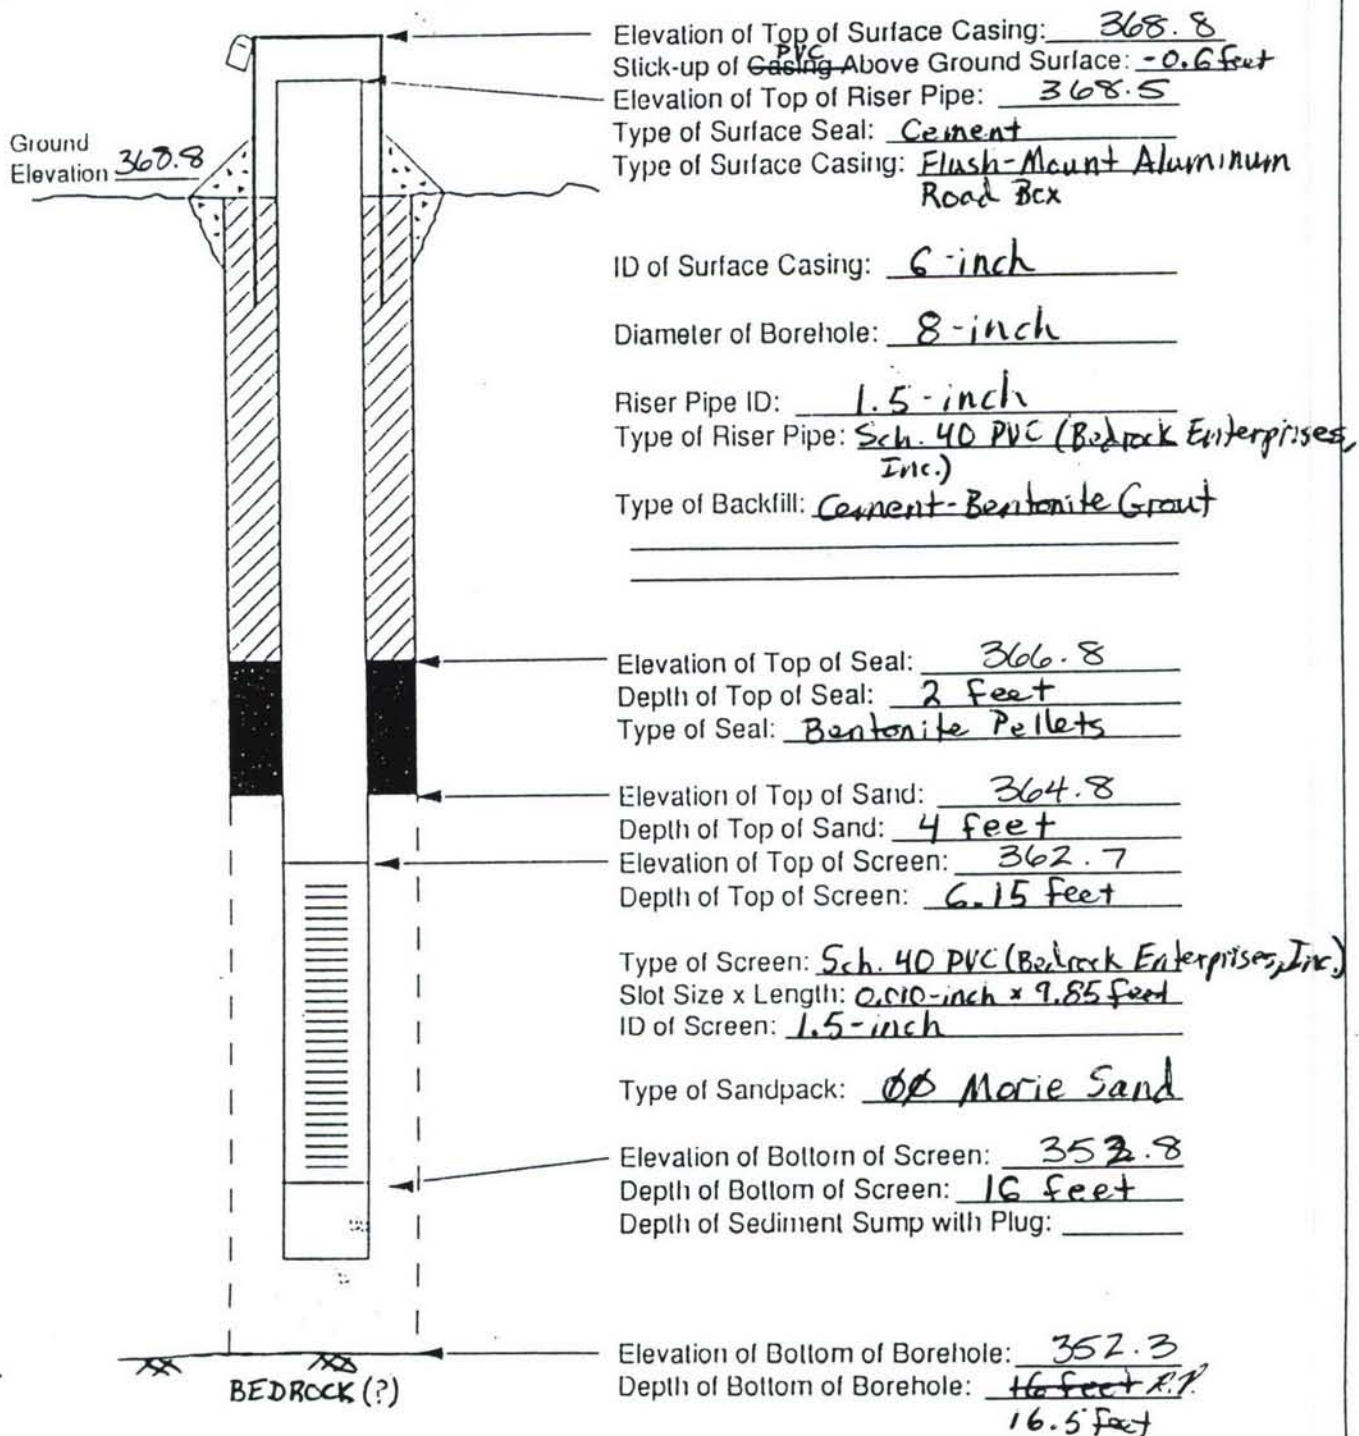 Elevation of Top of Surface Casing: 368.8
PVC
Stick-up of Casing Above Ground Surface: -0.6 feet
Elevation of Top of Riser Pipe: 368.5
Ground
Elevation 368.8
Type of Surface Seal: Cement
Type of Surface Casing: Flush-Mount Aluminum
Road Box
ID of Surface Casing: 6-inch
Diameter of Borehole: 8-inch
Riser Pipe ID: 1.5-inch
Type of Riser Pipe: Sch. 40 PVC (Bedrock Enterprises,
Inc.)
Type of Backfill: Cement-Bentonite Grout
Elevation of Top of Seal: 366.8
Depth of Top of Seal: 2 feet
Type of Seal: Bentonite Pellets
Elevation of Top of Sand: 364.8
Depth of Top of Sand: 4 feet
Elevation of Top of Screen: 362.7
Depth of Top of Screen: 6.15 feet
Type of Screen: Sch. 40 PVC (Bedrock Enterprises, Inc.)
Slot Size x Length: 0.010-inch x 9.85 feet
ID of Screen: 1.5-inch
Type of Sandpack: 00 Morie Sand
Elevation of Bottom of Screen: 352.8
Depth of Bottom of Screen: 16 feet
Depth of Sediment Sump with Plug:
Elevation of Bottom of Borehole: 352.3
Depth of Bottom of Borehole: 16 feet
16.5 feet
BEDROCK (?)